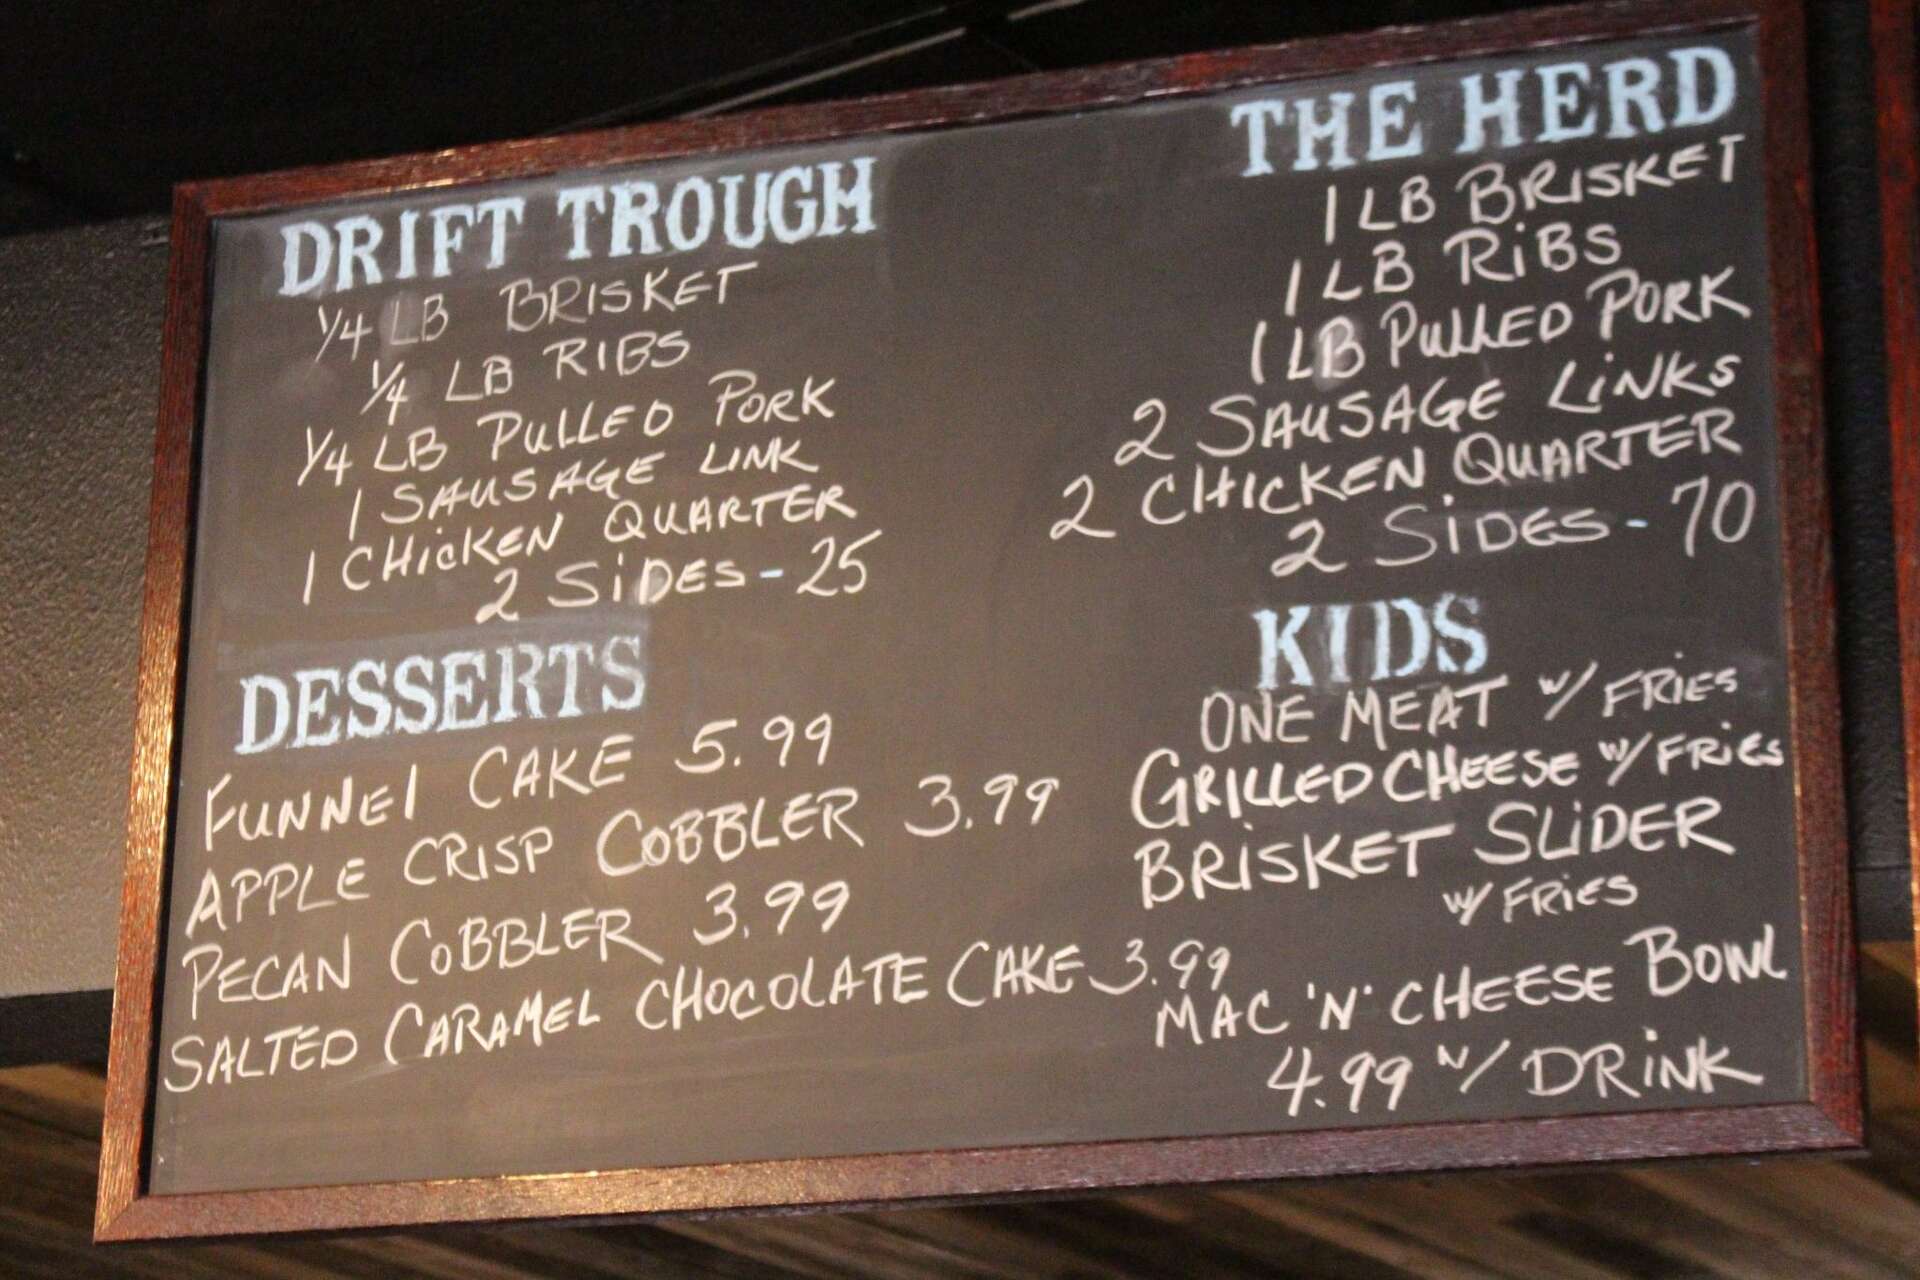 DRIFT TROUGH
1/4 LB BRISKET
1/4 LB RIBS
1/4 LB PULLED PORK
1 SAUSAGE LINK
1 CHICKEN QUARTER
2 SIDES - 25
DESSERTS
FUNNEl CAKE 5.99
APPLE CRISP COBBLER 3.99
PECAN COBBLER 3.99
SALTED CARAMEL CHOCOLATE CAKE 3.99
THE HERD
1 LB BRISKET
1 LB RiBS
1 LB PULLED PORK
2 SAUSAGE LiNKS
2 CHICKEN QUARTER
2 SiDES - 70
KIDS
ONE MEAT w/ FRiES
GRILLED CHEESE w/ FRiES
BRiSKET SLiDER
w/ FRiES
MAC 'N' CHEESE BOWL
4.99 w/ DRiNK